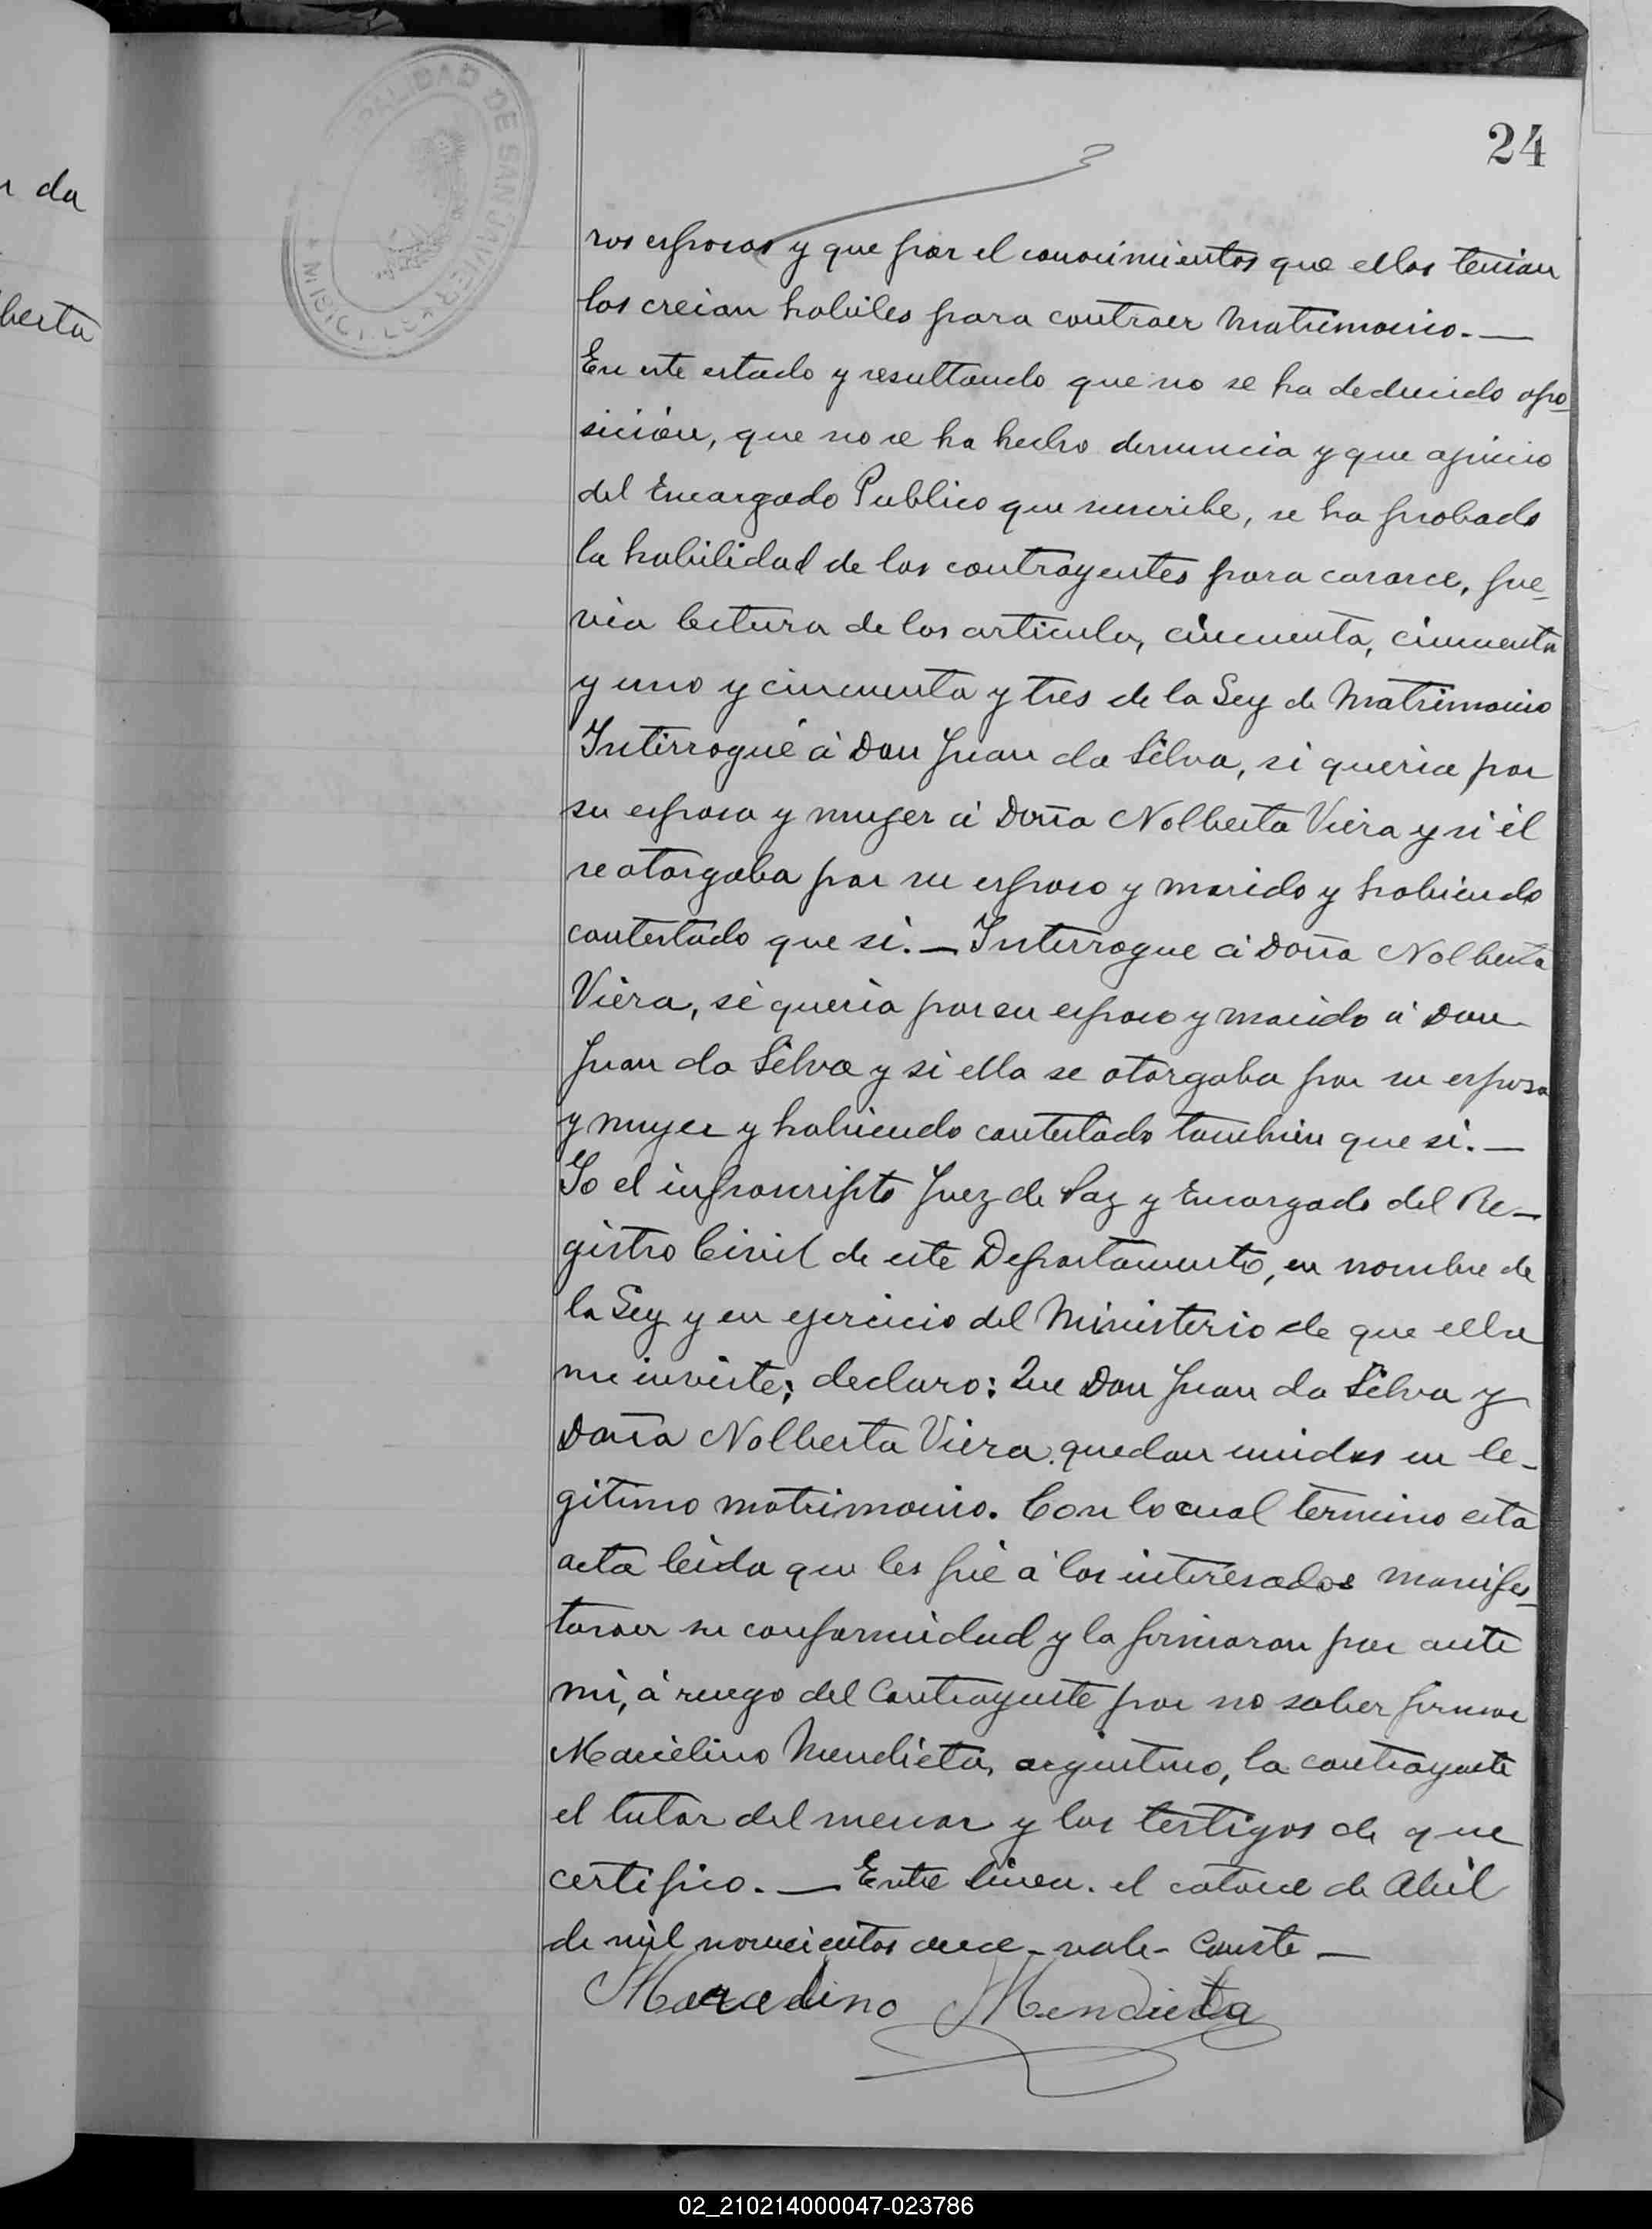 24
ros esposos y que por el conocimientos que ellos tenian
los creian habiles para contraer Matrimonio.—
En este estado y resultando que no se ha deducido opo
sición, que no se ha hecho denuncia y que ajuicio
del Encargado Publico que suscribe, se ha probado
la habilidad de los contrayentes para cararce, pre_
via lectura de los articulo, cincuenta, cincuenta
y uno y cincuenta y tres de la Ley de Matrimonio
Interrogué á Don Juan da Silva, si queria por
su esposa y muger á Doña Nolberta Viera y si él
se otorgaba por su esposo y marido y habiendo
contestado que si.— Interrogue á Doña Nolberta
Viera, si queria por su esposo y marido á Don
Juan da Silva y si ella se otorgaba por su esposa
y muger y habiendo contestado tambien que si.—
Yo el infrascripto Juez de Paz y Encargado del Re—
gistro Civil de este Departamento, en nombre de
la Ley y en ejercicio del Ministerio de que ella
me inviste; declaro: Que Don Juan da Silva y
Doña Nolberta Viera quedan unidos en le-
gitimo matrimonio. Con lo cual termino esta
acta leida que les fué á los interesados manifes_
taron su conformidad y la firmaron por ante
mi, á ruego del Contrayente por no saber firmar
Marcelino Mendieta, argentino, la contrayente
el tutor del menor y los testigos de que
certifico.— Entre linea. el catorce de Abril
de mil novecientos once - vale - Conste —
Marcelino Mendieta
MUNICIPALIDAD DE SAN JAVIER
MISIONES
da
berta
02_210214000047-023786